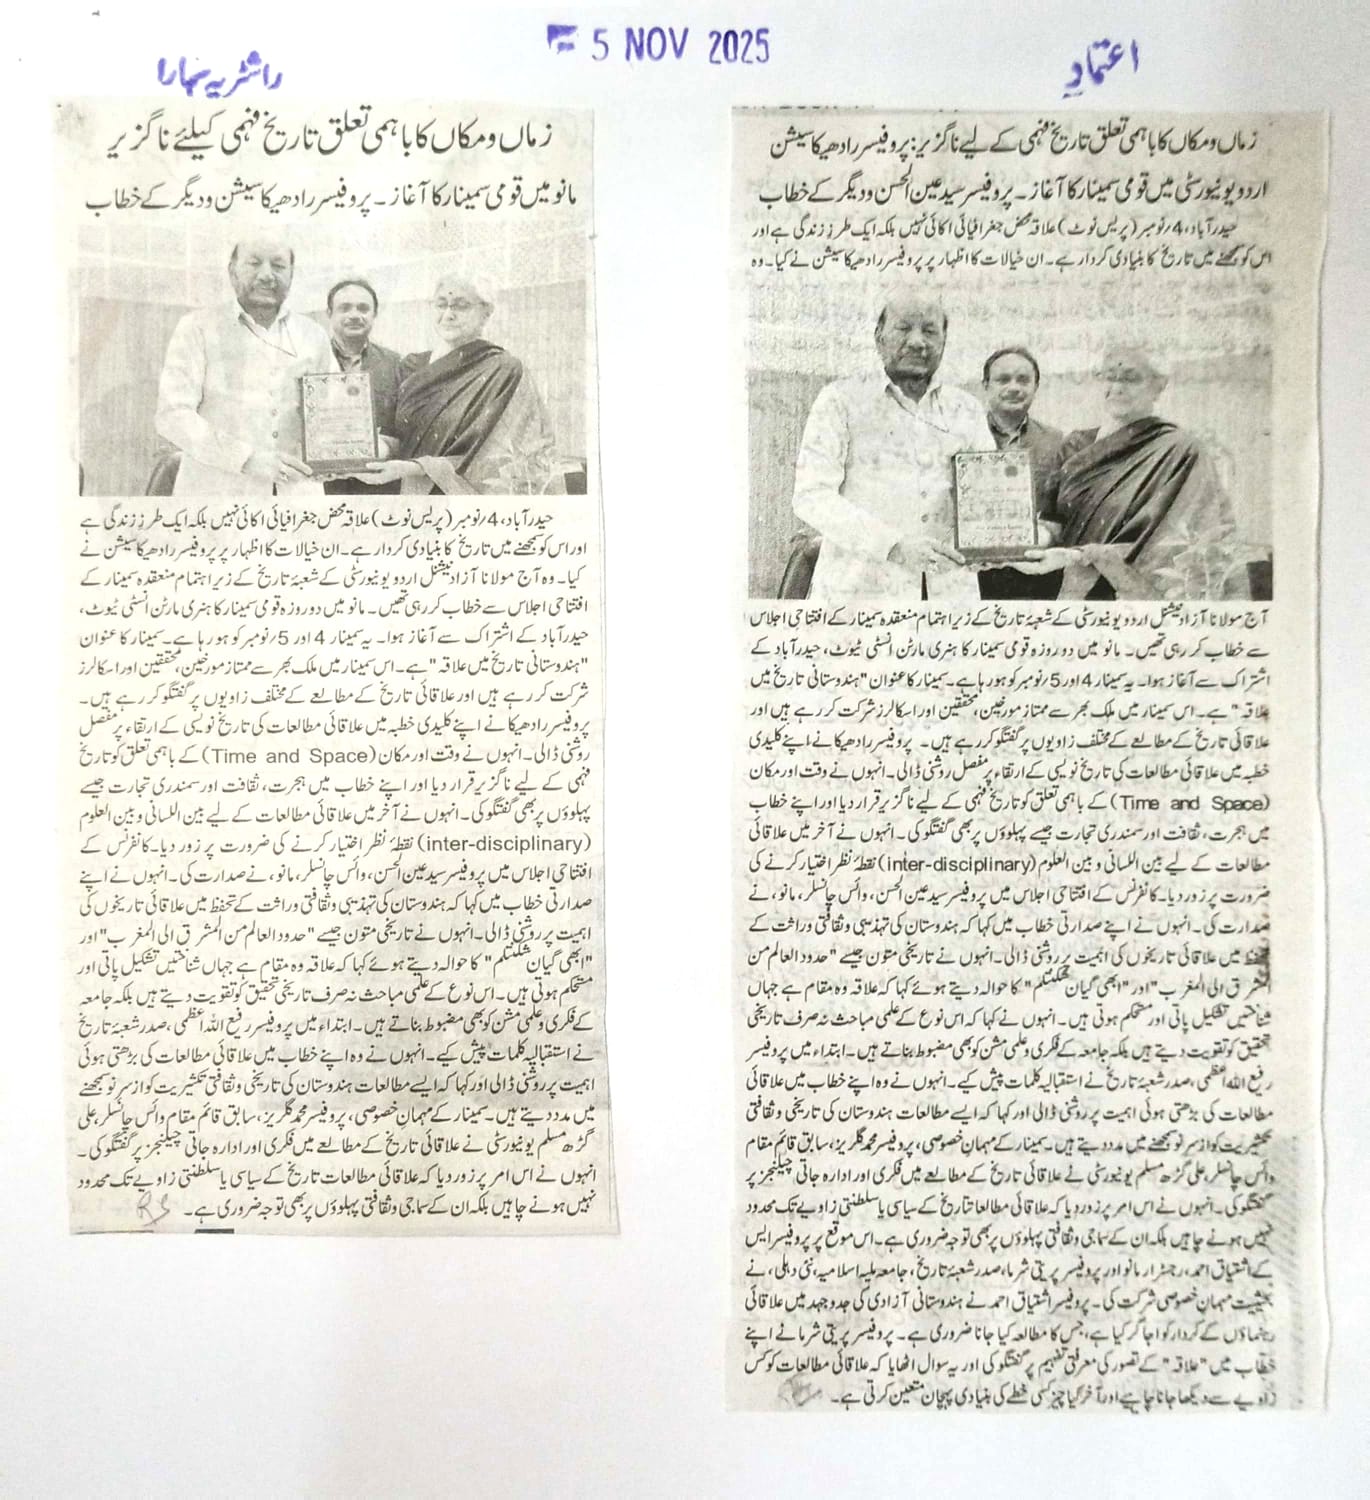 5 NOV 2025
راشٹریہ سہارا
زماں و مکاں کا باہمی تعلق تاریخ فہمی کیلئے ناگزیر
مانو میں قومی سمینار کا آغاز۔ پروفیسر رادھیکا سیشن و دیگر کے خطاب
حیدرآباد، 4/نومبر (پریس نوٹ) علاقہ محض جغرافیائی اکائی نہیں بلکہ ایک طرزِ زندگی ہے
اور اس کو سمجھنے میں تاریخ کا بنیادی کردار ہے۔ ان خیالات کا اظہار پر پروفیسر رادھیکا سیشن نے
کیا۔ وہ آج مولانا آزاد نیشنل اردو یونیورسٹی کے شعبۂ تاریخ کے زیر اہتمام منعقدہ سمینار کے
افتتاحی اجلاس سے خطاب کر رہی تھیں۔ مانو میں دو روزہ قومی سمینار کا ہنری مارٹن انسٹی ٹیوٹ،
حیدرآباد کے اشتراک سے آغاز ہوا۔ یہ سمینار 4 اور 5/نومبر کو ہو رہا ہے۔ سمینار کا عنوان
"ہندوستانی تاریخ میں علاقہ" ہے۔ اس سمینار میں ملک بھر سے ممتاز مورخین، محققین اور اسکالرز
شرکت کر رہے ہیں اور علاقائی تاریخ کے مطالعے کے مختلف زاویوں پر گفتگو کر رہے ہیں۔
پروفیسر رادھیکا نے اپنے کلیدی خطبہ میں علاقائی مطالعات کی تاریخ نویسی کے ارتقاء پر مفصل
روشنی ڈالی۔ انہوں نے وقت اور مکان (Time and Space) کے باہمی تعلق کو تاریخ
فہمی کے لیے ناگزیر قرار دیا اور اپنے خطاب میں ہجرت، ثقافت اور سمندری تجارت جیسے
پہلوؤں پر بھی گفتگو کی۔ انہوں نے آخر میں علاقائی مطالعات کے لیے بین اللسانی و بین العلوم
(inter-disciplinary) نقطۂ نظر اختیار کرنے کی ضرورت پر زور دیا۔ کانفرنس کے
افتتاحی اجلاس میں پروفیسر سید عین الحسن، وائس چانسلر، مانو، نے صدارت کی۔ انہوں نے اپنے
صدارتی خطاب میں کہا کہ ہندوستان کی تہذیبی و ثقافتی وراثت کے تحفظ میں علاقائی تاریخوں کی
اہمیت پر روشنی ڈالی۔ انہوں نے تاریخی متون جیسے "حدود العالم من المشرق الی المغرب" اور
"ابھی گیان شکنتلم" کا حوالہ دیتے ہوئے کہا کہ علاقہ وہ مقام ہے جہاں شناختیں تشکیل پاتی اور
مستحکم ہوتی ہیں۔ اس نوع کے علمی مباحث نہ صرف تاریخی تحقیق کو تقویت دیتے ہیں بلکہ جامعہ
کے فکری و علمی مشن کو بھی مضبوط بناتے ہیں۔ ابتداء میں پروفیسر رفیع اللہ اعظمی، صدر شعبۂ تاریخ
نے استقبالیہ کلمات پیش کیے۔ انہوں نے وہ اپنے خطاب میں علاقائی مطالعات کی بڑھتی ہوئی
اہمیت پر روشنی ڈالی اور کہا کہ ایسے مطالعات ہندوستان کی تاریخی و ثقافتی تکثیریت کو از سر نو سمجھنے
میں مدد دیتے ہیں۔ سمینار کے مہمانِ خصوصی، پروفیسر محمد گلریز، سابق قائم مقام وائس چانسلر، علی
گڑھ مسلم یونیورسٹی نے علاقائی تاریخ کے مطالعے میں فکری اور ادارہ جاتی چیلنجز پر گفتگو کی۔
انہوں نے اس امر پر زور دیا کہ علاقائی مطالعات تاریخ کے سیاسی یا سلطنتی زاویے تک محدود
نہیں ہونے چاہیں بلکہ ان کے سماجی و ثقافتی پہلوؤں پر بھی توجہ ضروری ہے۔
RS
اعتماد
زماں و مکاں کا باہمی تعلق تاریخ فہمی کے لیے ناگزیر: پروفیسر رادھیکا سیشن
اردو یونیورسٹی میں قومی سمینار کا آغاز۔ پروفیسر سید عین الحسن و دیگر کے خطاب
حیدرآباد، 4/نومبر (پریس نوٹ) علاقہ محض جغرافیائی اکائی نہیں بلکہ ایک طرزِ زندگی ہے اور
اس کو سمجھنے میں تاریخ کا بنیادی کردار ہے۔ ان خیالات کا اظہار پر پروفیسر رادھیکا سیشن نے کیا۔ وہ
آج مولانا آزاد نیشنل اردو یونیورسٹی کے شعبۂ تاریخ کے زیر اہتمام منعقدہ سمینار کے افتتاحی اجلاس
سے خطاب کر رہی تھیں۔ مانو میں دو روزہ قومی سمینار کا ہنری مارٹن انسٹی ٹیوٹ، حیدرآباد کے
اشتراک سے آغاز ہوا۔ یہ سمینار 4 اور 5/نومبر کو ہو رہا ہے۔ سمینار کا عنوان "ہندوستانی تاریخ میں
علاقہ" ہے۔ اس سمینار میں ملک بھر سے ممتاز مورخین، محققین اور اسکالرز شرکت کر رہے ہیں اور
علاقائی تاریخ کے مطالعے کے مختلف زاویوں پر گفتگو کر رہے ہیں۔ پروفیسر رادھیکا نے اپنے کلیدی
خطبہ میں علاقائی مطالعات کی تاریخ نویسی کے ارتقاء پر مفصل روشنی ڈالی۔ انہوں نے وقت اور مکان
(Time and Space) کے باہمی تعلق کو تاریخ فہمی کے لیے ناگزیر قرار دیا اور اپنے خطاب
میں ہجرت، ثقافت اور سمندری تجارت جیسے پہلوؤں پر بھی گفتگو کی۔ انہوں نے آخر میں علاقائی
مطالعات کے لیے بین اللسانی و بین العلوم (inter-disciplinary) نقطۂ نظر اختیار کرنے کی
ضرورت پر زور دیا۔ کانفرنس کے افتتاحی اجلاس میں پروفیسر سید عین الحسن، وائس چانسلر، مانو، نے
صدارت کی۔ انہوں نے اپنے صدارتی خطاب میں کہا کہ ہندوستان کی تہذیبی و ثقافتی وراثت کے
تحفظ میں علاقائی تاریخوں کی اہمیت پر روشنی ڈالی۔ انہوں نے تاریخی متون جیسے "حدود العالم من
المشرق الی المغرب" اور "ابھی گیان شکنتلم" کا حوالہ دیتے ہوئے کہا کہ علاقہ وہ مقام ہے جہاں
شناختیں تشکیل پاتی اور مستحکم ہوتی ہیں۔ انہوں نے کہا کہ اس نوع کے علمی مباحث نہ صرف تاریخی
تحقیق کو تقویت دیتے ہیں بلکہ جامعہ کے فکری و علمی مشن کو بھی مضبوط بناتے ہیں۔ ابتداء میں پروفیسر
رفیع اللہ اعظمی، صدر شعبۂ تاریخ نے استقبالیہ کلمات پیش کیے۔ انہوں نے وہ اپنے خطاب میں علاقائی
مطالعات کی بڑھتی ہوئی اہمیت پر روشنی ڈالی اور کہا کہ ایسے مطالعات ہندوستان کی تاریخی و ثقافتی
تکثیریت کو از سر نو سمجھنے میں مدد دیتے ہیں۔ سمینار کے مہمانِ خصوصی، پروفیسر محمد گلریز، سابق قائم مقام
وائس چانسلر، علی گڑھ مسلم یونیورسٹی نے علاقائی تاریخ کے مطالعے میں فکری اور ادارہ جاتی چیلنجز پر
گفتگو کی۔ انہوں نے اس امر پر زور دیا کہ علاقائی مطالعات تاریخ کے سیاسی یا سلطنتی زاویے تک محدود
نہیں ہونے چاہیں بلکہ ان کے سماجی و ثقافتی پہلوؤں پر بھی توجہ ضروری ہے۔ اس موقع پر پروفیسر ایس
کے اشتیاق احمد، رجسٹرار مانو اور پروفیسر پریتی شرما، صدر شعبۂ تاریخ، جامعہ ملیہ اسلامیہ، نئی دہلی، نے
بحیثیت مہمانِ خصوصی شرکت کی۔ پروفیسر اشتیاق احمد نے ہندوستانی آزادی کی جدوجہد میں علاقائی
رہنماؤں کے کردار کو اجاگر کیا ہے، جس کا مطالعہ کیا جانا ضروری ہے۔ پروفیسر پریتی شرما نے اپنے
خطاب میں "علاقہ" کے تصور کی معرفتی تفہیم پر گفتگو کی اور یہ سوال اٹھایا کہ علاقائی مطالعات کو کس
زاویے سے دیکھا جانا چاہیے اور آخر کیا چیز کسی خطے کی بنیادی پہچان متعین کرتی ہے۔